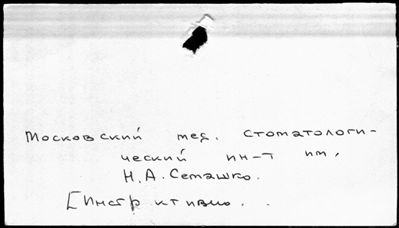 Московский мед. стоматологи-
ческий ин-т им.
Н.А.Семашко.
[Инстр